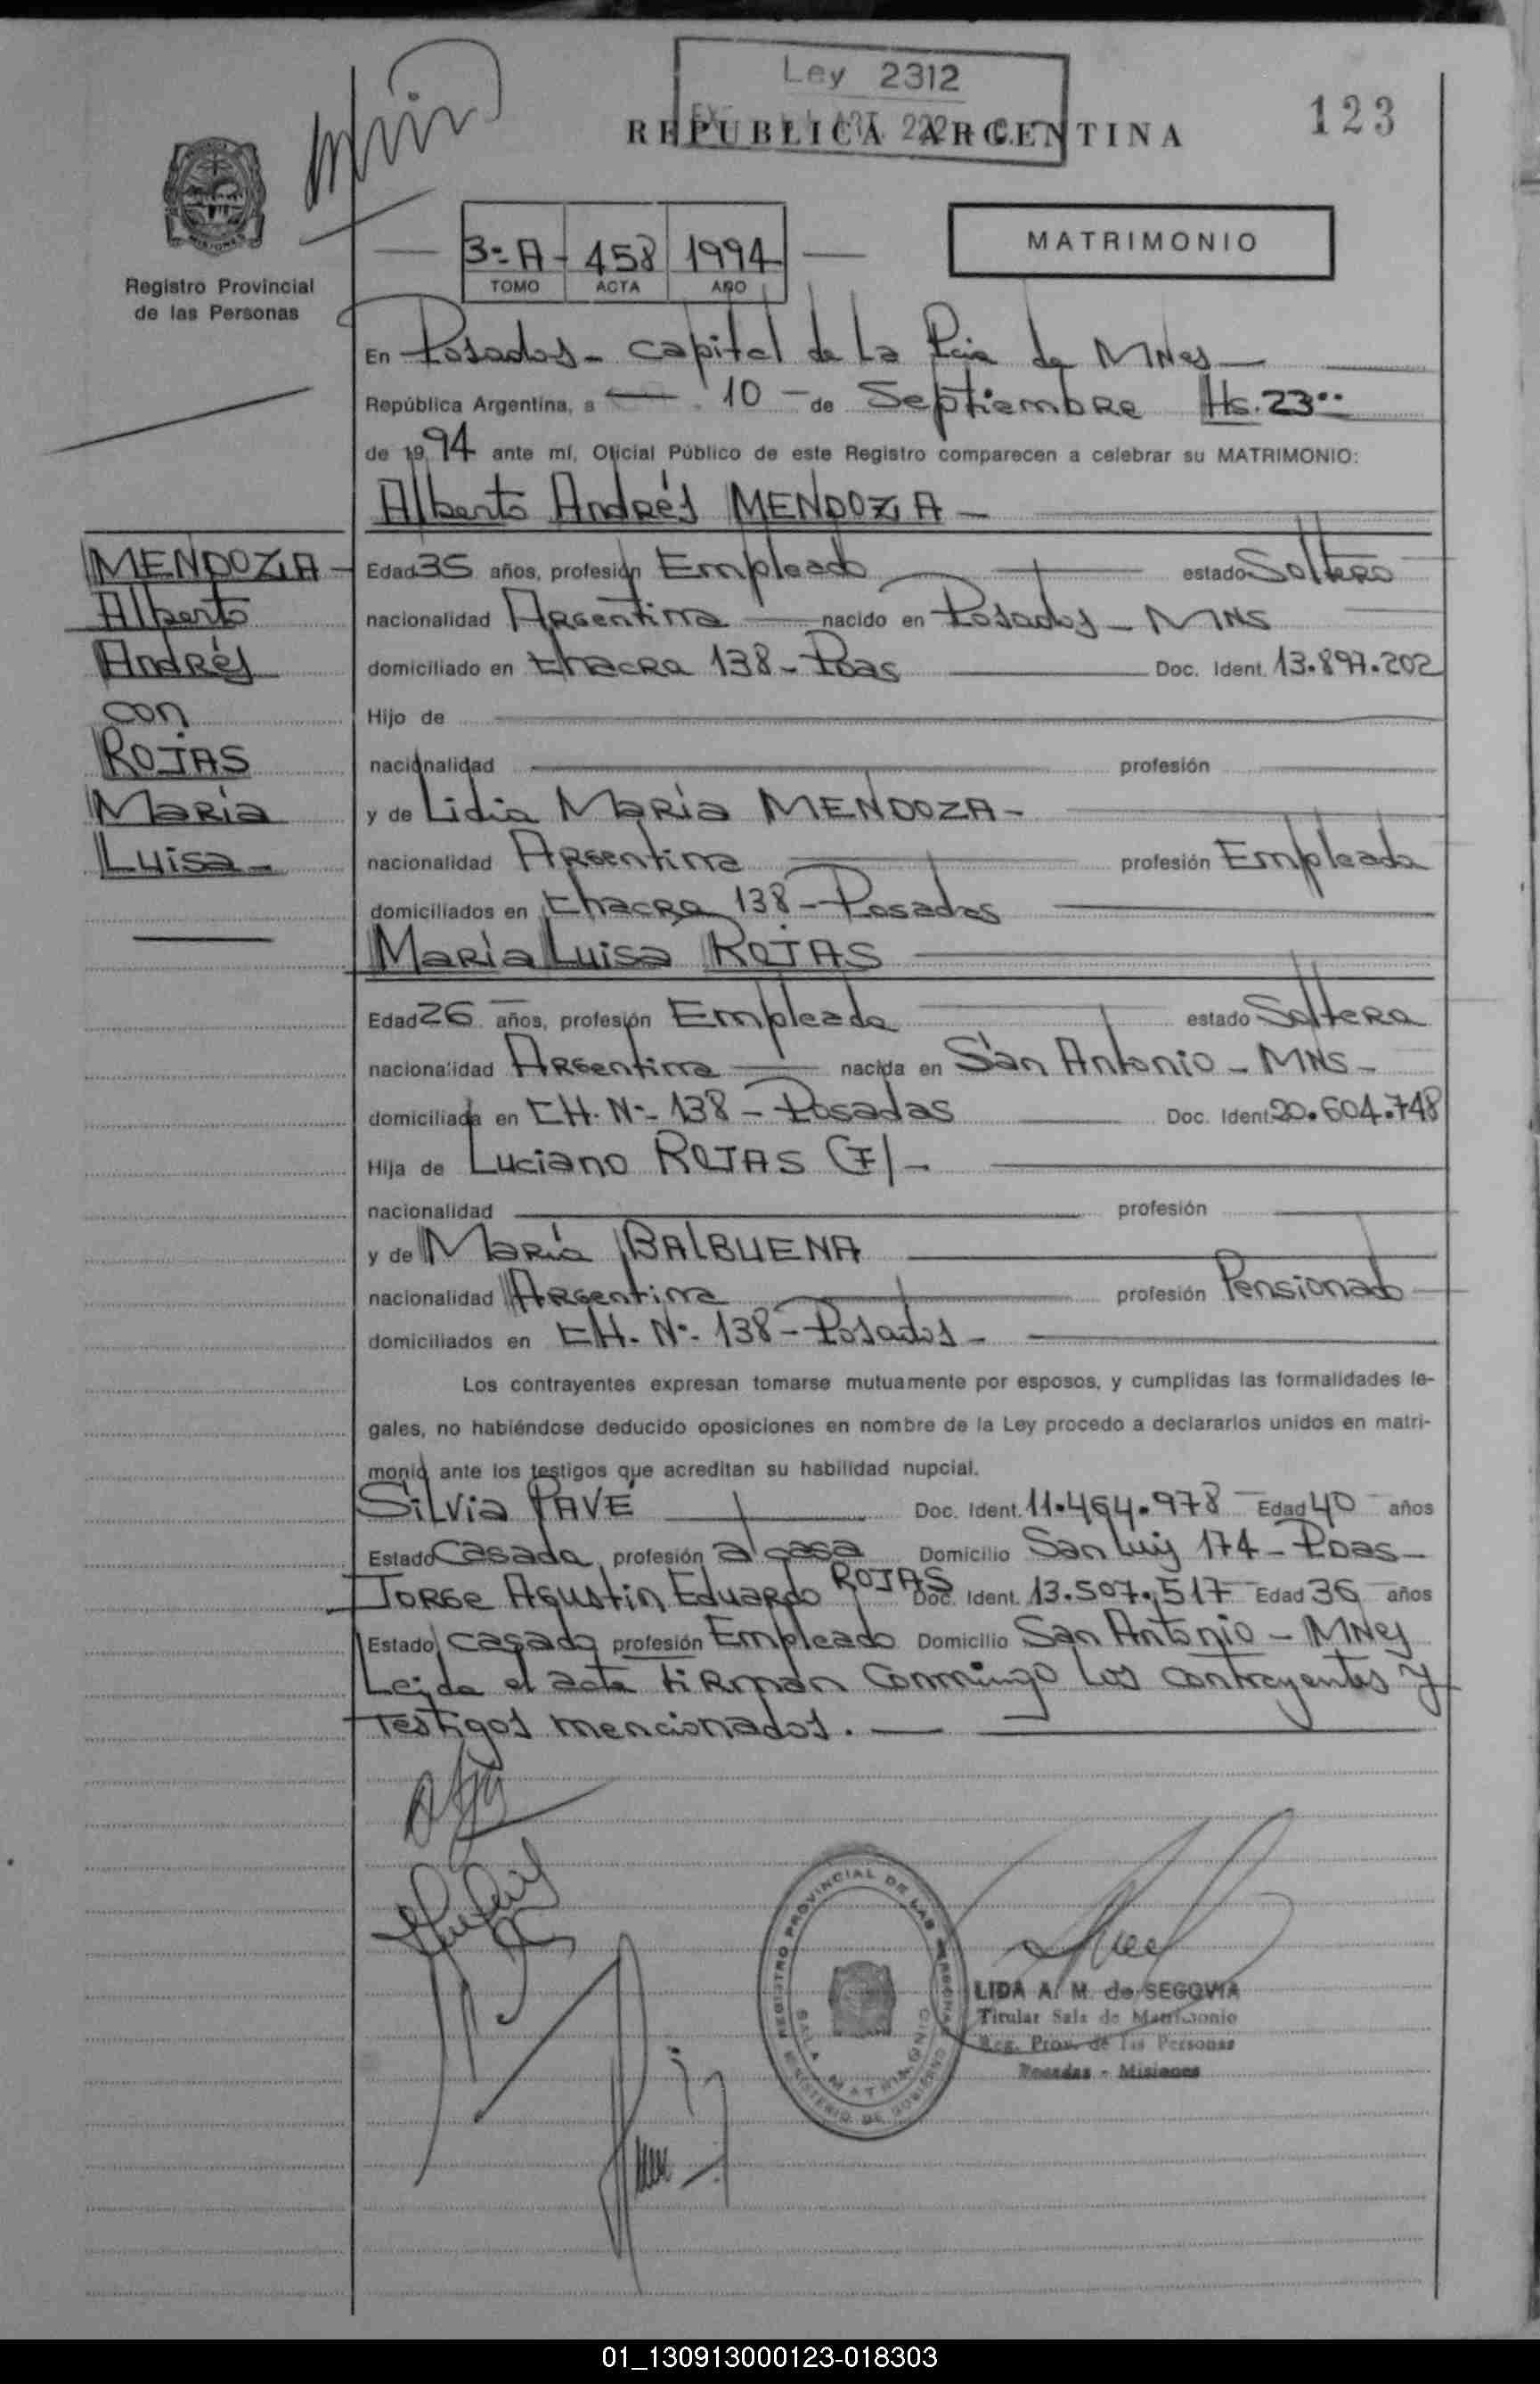 Ley 2312
REPUBLICA ARGENTINA
123
Registro Provincial
de las Personas
3º A - 458 1994
TOMO ACTA AÑO
MATRIMONIO
En Posadas - capital de La Pcia de MNes
República Argentina, a 10 de Septiembre Hs. 23··
de 1994 ante mí, Oficial Público de este Registro comparecen a celebrar su MATRIMONIO:
Alberto Andrés MENDOZA -
MENDOZA
Alberto
Andrés
con
ROJAS
María
Luisa -
Edad 35 años, profesión Empleado estado Soltero
nacionalidad Argentina nacido en Posadas - MNS
domiciliado en Chacra 138 - Pdas Doc. Ident. 13.897.202
Hijo de
nacionalidad profesión
y de Lidia María MENDOZA -
nacionalidad Argentina profesión Empleada
domiciliados en Chacra 138 - Posadas
María Luisa ROJAS
Edad 26 años, profesión Empleada estado Soltera
nacionalidad Argentina nacida en San Antonio - MNS -
domiciliada en CH. Nº 138 - Posadas Doc. Ident. 20.604.748
Hija de Luciano ROJAS (F) -
nacionalidad profesión
y de María BALBUENA
nacionalidad Argentina profesión Pensionado
domiciliados en CH. Nº 138 - Posadas -
Los contrayentes expresan tomarse mutuamente por esposos, y cumplidas las formalidades le-
gales, no habiéndose deducido oposiciones en nombre de la Ley procedo a declararlos unidos en matri-
monio ante los testigos que acreditan su habilidad nupcial.
Silvia PAVÉ Doc. Ident. 11.464.978 Edad 40 años
Estado Casada profesión a casa Domicilio San Luis 174 - Pdas -
Jorge Agustín Eduardo ROJAS Doc. Ident. 13.507.517 Edad 36 años
Estado casado profesión Empleado Domicilio San Antonio - MNes
Leída el acta firman Conmingo Los contrayentes y
Testigos mencionados.
REGISTRO PROVINCIAL DE LAS PERSONAS
SALA MATRIMONIO
MINISTERIO DE GOBIERNO
LIDA A. M. de SEGOVIA
Titular Sala de Matrimonio
Reg. Prov. de las Personas
Posadas - Misiones
01_130913000123-018303